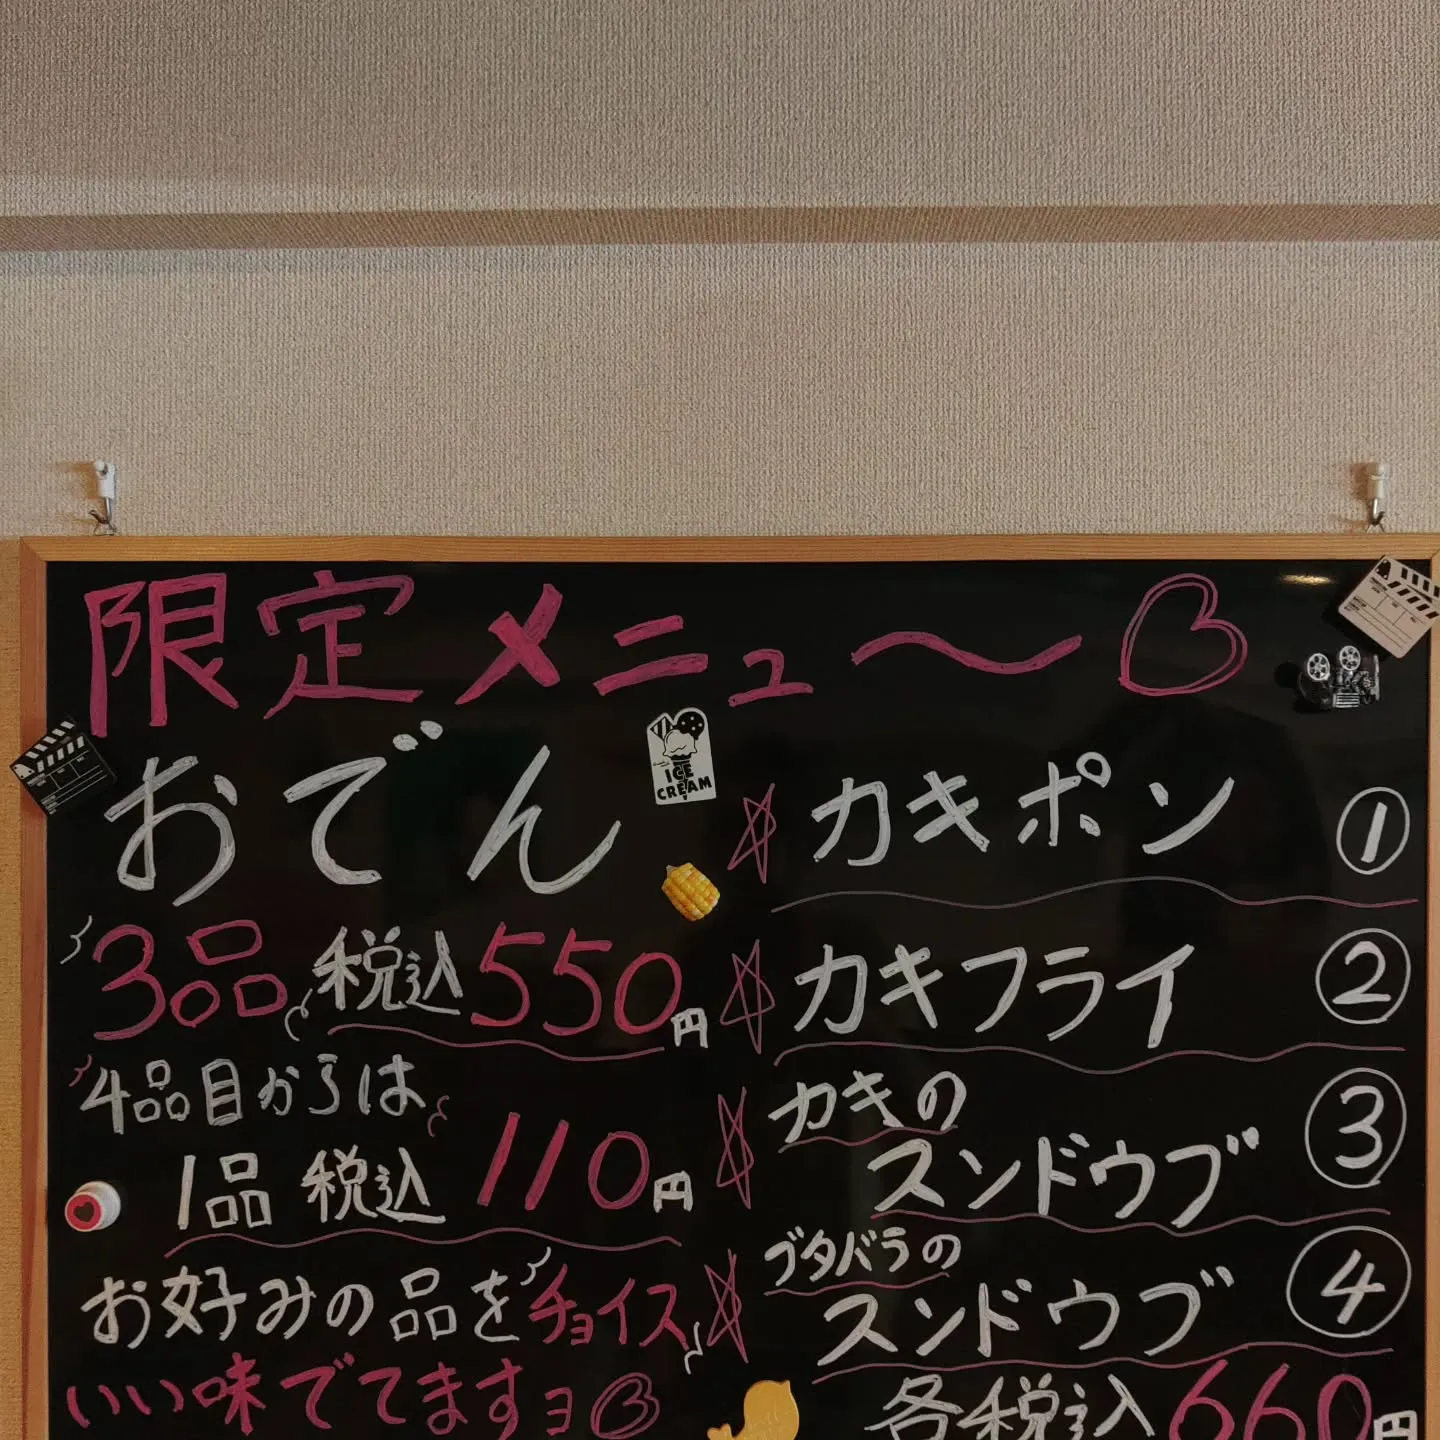 限定メニュ〜♡
おでん
3品 税込550円
4品目からは
1品 税込 110円
お好みの品をチョイス
いい味でてますョ♡
ICE
CREAM
☆カキポン ①
☆カキフライ ②
☆カキの
スンドゥブ ③
☆ブタバラの
スンドゥブ ④
各税込660円